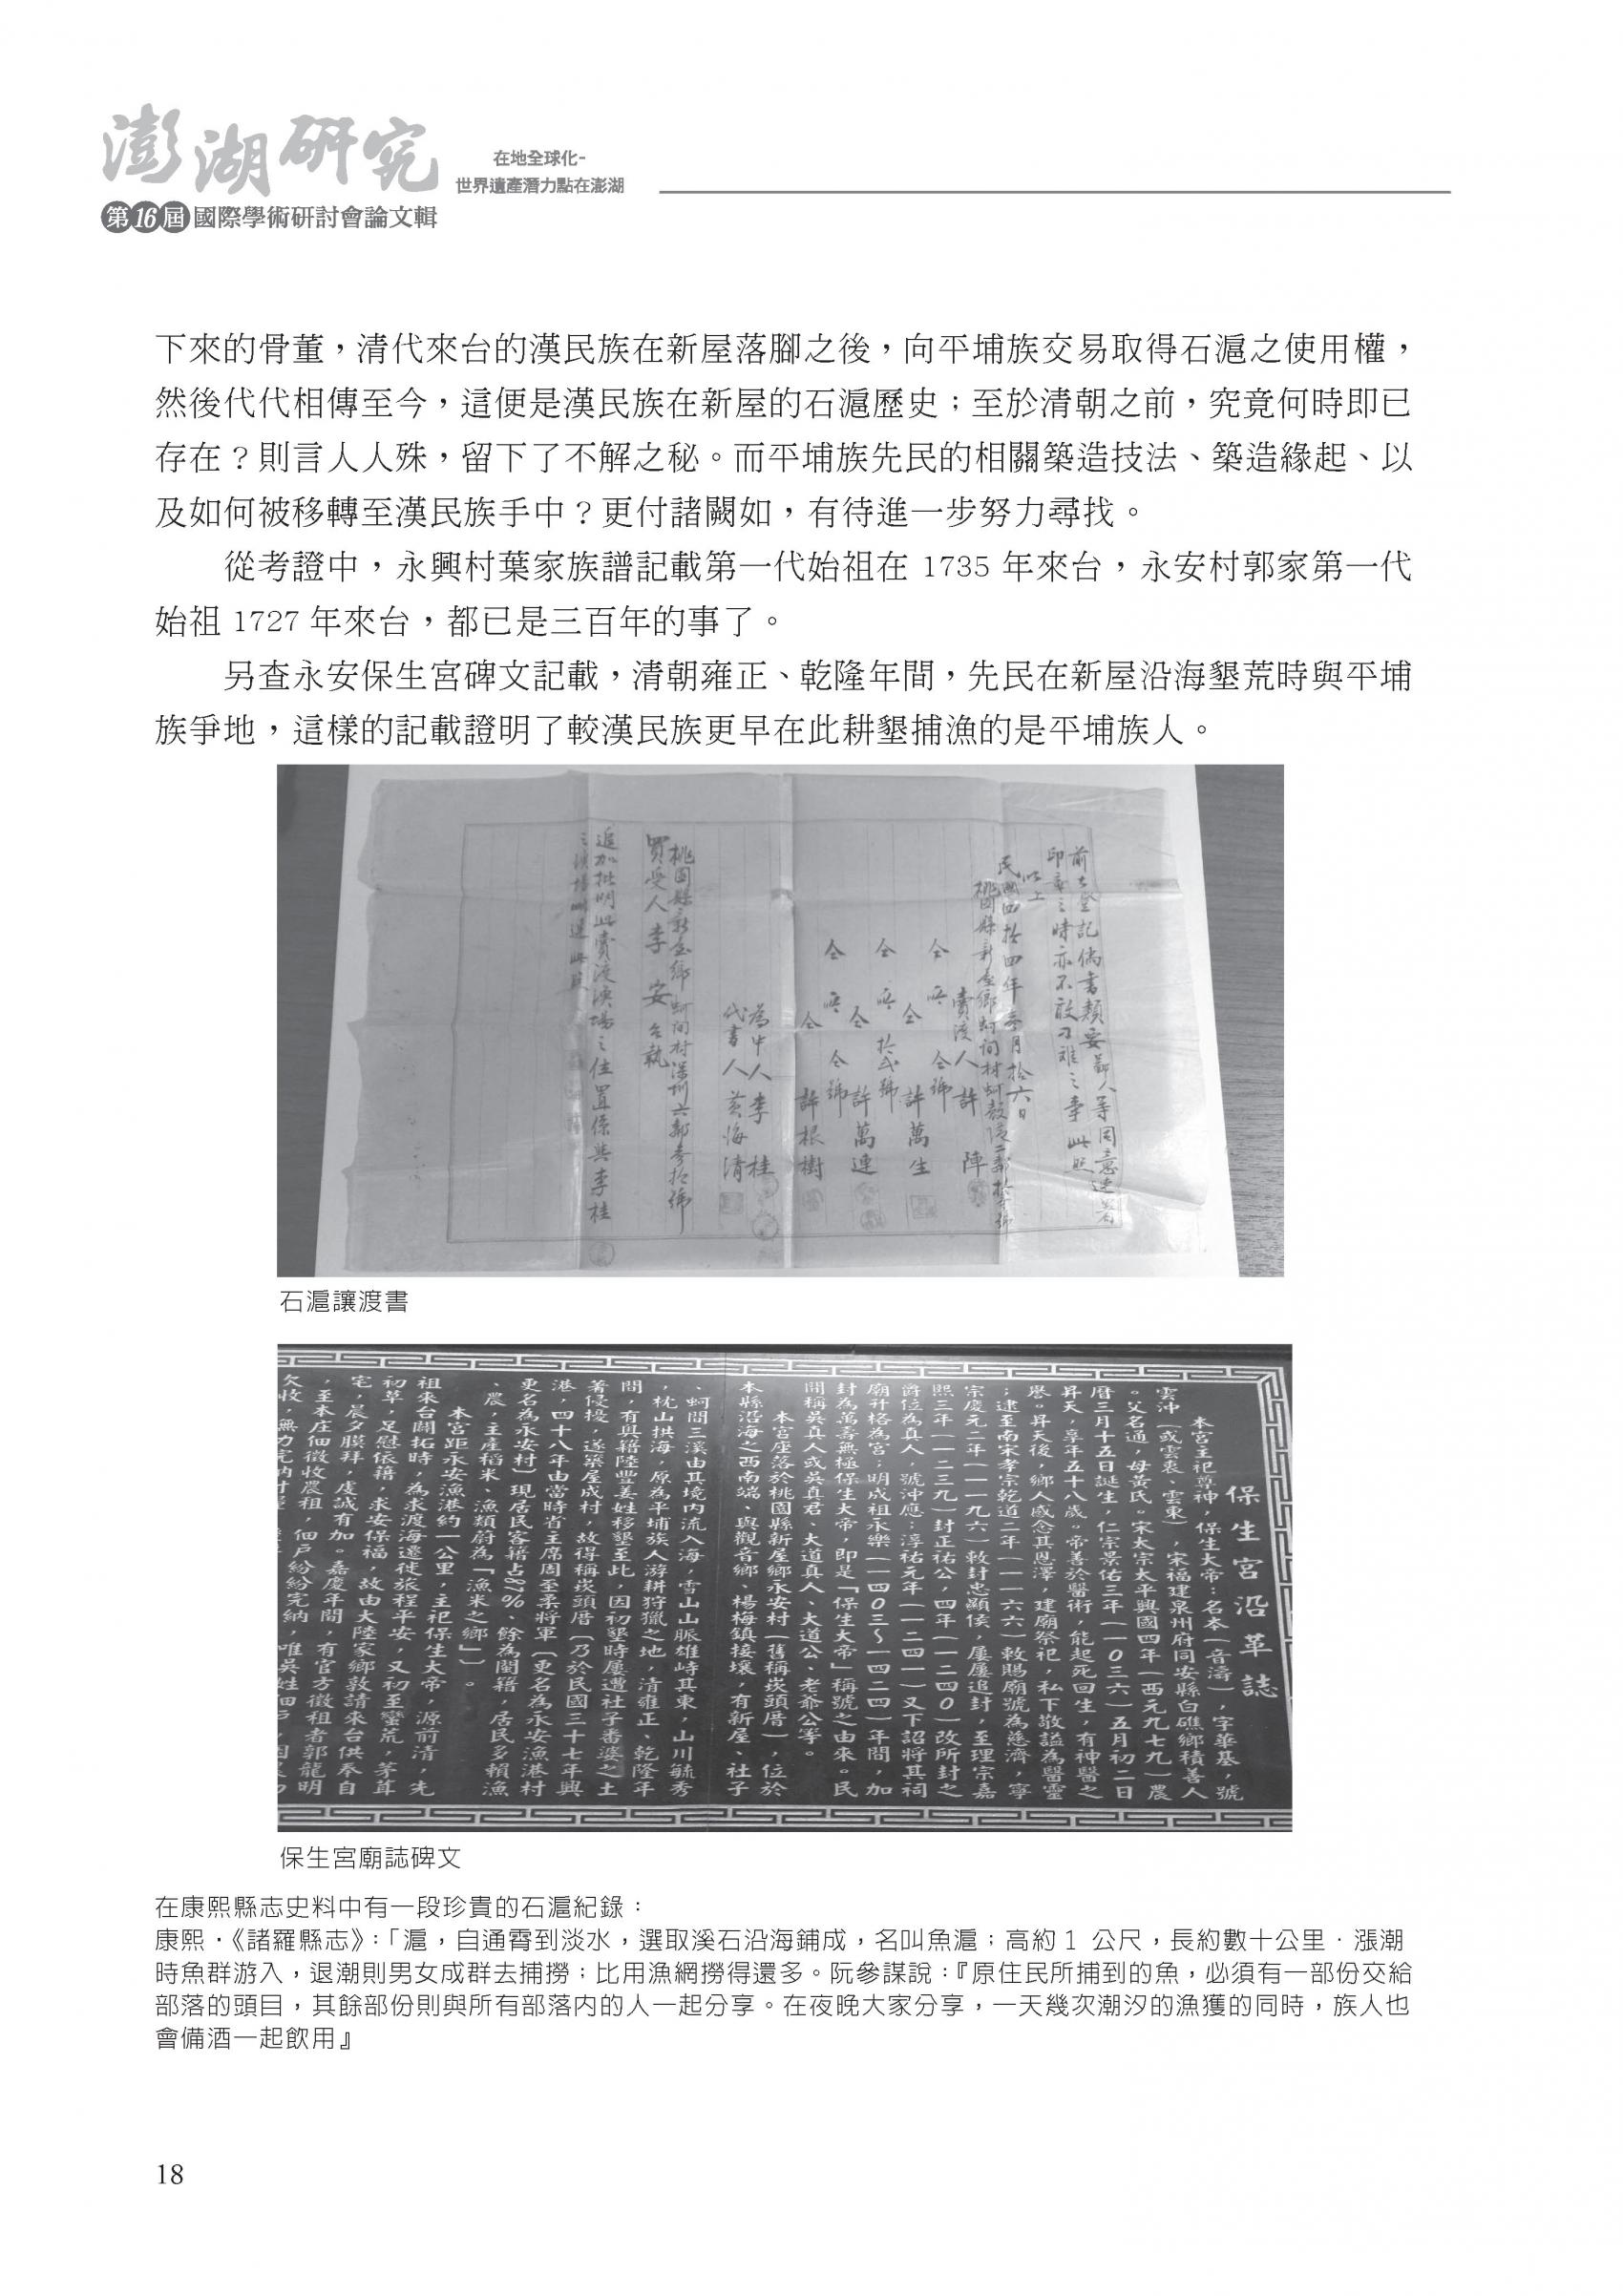 澎湖研究
第16屆國際學術研討會論文輯
在地全球化-
世界遺產潛力點在澎湖
下來的骨董，清代來台的漢民族在新屋落腳之後，向平埔族交易取得石滬之使用權，
然後代代相傳至今，這便是漢民族在新屋的石滬歷史；至於清朝之前，究竟何時即已
存在？則言人人殊，留下了不解之秘。而平埔族先民的相關築造技法、築造緣起、以
及如何被移轉至漢民族手中？更付諸闕如，有待進一步努力尋找。
從考證中，永興村葉家族譜記載第一代始祖在 1735 年來台，永安村郭家第一代
始祖 1727 年來台，都已是三百年的事了。
另查永安保生宮碑文記載，清朝雍正、乾隆年間，先民在新屋沿海墾荒時與平埔
族爭地，這樣的記載證明了較漢民族更早在此耕墾捕漁的是平埔族人。
印章之時亦不敢刁難之事此照
以上
民國四拾四年叁月拾六日
賣渡人 許 陣
許萬生
許萬連
許根樹
為中人 李 桂
代書人 黃海清
買受人 李 安 仝執
追加批明此賣渡漁場之位置係與李桂
石滬讓渡書
保生宮沿革誌
本宮主祀尊神，保生大帝：名本（音濤），字華基，號
雲沖（或雲衷、雲東），宋福建泉州府同安縣白礁鄉積善人
。父名通，母黃氏。宋太宗太平興國四年（西元九七九）農
曆三月十五日誕生，仁宗景佑三年（一０三六）五月初二日
昇天，享年五十八歲。帝善於醫術，能起死回生，有神醫之
譽。昇天後，鄉人感念其恩澤，建廟祭祀，私下敬謚為醫靈
；逮至南宋孝宗乾道二年（一一六六）敕賜廟號為慈濟，寧
宗慶元二年（一一九六）敕封忠顯侯，屢屢追封，至理宗嘉
熙三年（一二三九）封正祐公，四年（一二四０）改所封之
爵位為真人，號沖應；淳祐元年（一二四一）又下詔將其祠
廟升格為宮；明成祖永樂（一四０三～一四二四）年間，加
封為萬壽無極保生大帝，即是「保生大帝」稱號之由來。民
間稱吳真人或吳真君、大道真人、大道公、老爺公等。
本宮座落於桃園縣新屋鄉永安村（舊稱崁頭厝），位於
本縣沿海之西南端，與觀音鄉、楊梅鎮接壤，有新屋、社子
、蚵間三溪由其境內流入海，雪山山脈雄峙其東，山川毓秀
，枕山拱海，原為平埔族人游耕狩獵之地，清雍正、乾隆年
間，有粵籍陸豐姜姓移墾至此，因初墾時屢遭社子番婆之土
著侵擾，遂築屋成村，故得稱崁頭厝（乃於民國三十七年興
港，四十八年由當時省主席周至柔將軍（更名為永安漁港村
更名為永安村）現居民客籍占87%、餘為閩籍，居民多賴漁
、農，主產稻米、漁類蔚為「漁米之鄉」）。
本宮距永安漁港約一公里，主祀保生大帝，源前清，先
祖來台闢拓時，為求渡海遷徙旅程平安，又初至蠻荒，茅茸
初草，足慰依藉，求安保福，故由大陸家鄉敦請來台供奉自
宅，晨夕膜拜，虔誠有加。嘉慶年間，有官方徵租者郭龍明
，至本庄佃徵收農租，佃戶紛紛完納，唯吳姓佃戶，因
欠收，無力完納
保生宮廟誌碑文
在康熙縣志史料中有一段珍貴的石滬紀錄：
康熙‧《諸羅縣志》：「滬，自通霄到淡水，選取溪石沿海鋪成，名叫魚滬；高約 1 公尺，長約數十公里‧漲潮
時魚群游入，退潮則男女成群去捕撈；比用漁網撈得還多。阮參謀說：『原住民所捕到的魚，必須有一部份交給
部落的頭目，其餘部份則與所有部落內的人一起分享。在夜晚大家分享，一天幾次潮汐的漁獲的同時，族人也
會備酒一起飲用』
18